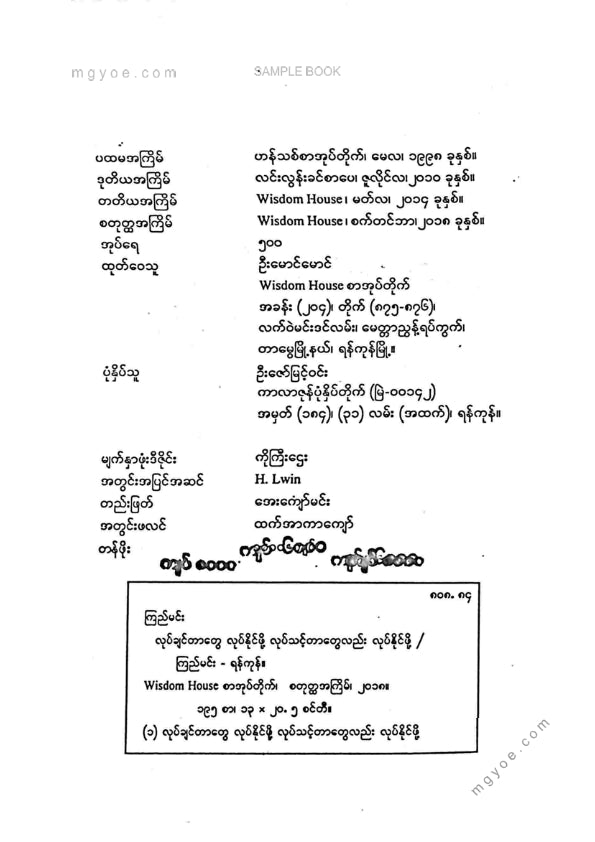 mgyoe.com SAMPLE BOOK
ပထမအကြိမ် ဟန်သစ်စာအုပ်တိုက်၊ မေလ၊ ၁၉၉၈ ခုနှစ်။
ဒုတိယအကြိမ် လင်းလွန်းခင်စာပေ၊ ဇူလိုင်လ၊၂၀၁၀ ခုနှစ်။
တတိယအကြိမ် Wisdom House၊ မတ်လ၊ ၂၀၁၄ ခုနှစ်။
စတုတ္ထအကြိမ် Wisdom House၊ စက်တင်ဘာ၊၂၀၁၈ ခုနှစ်။
အုပ်ရေ ၅၀၀
ထုတ်ဝေသူ ဦးမောင်မောင်
Wisdom House စာအုပ်တိုက်
အခန်း (၂၀၄)၊ တိုက် (၈၇၅-၈၇၆)၊
လက်ဝဲမင်းဒင်လမ်း၊ မေတ္တာညွန့်ရပ်ကွက်၊
တာမွေမြို့နယ်၊ ရန်ကုန်မြို့။
ပုံနှိပ်သူ ဦးဇော်မြင့်ဝင်း
ကာလာဇုန်ပုံနှိပ်တိုက် (မြဲ-၀၀၁၄၂)
အမှတ် (၁၈၄)၊ (၃၁) လမ်း (အထက်)၊ ရန်ကုန်။
မျက်နှာဖုံးဒီဇိုင်း ကိုကြီးဌေး
အတွင်းအပြင်အဆင် H. Lwin
တည်းဖြတ် အေးကျော်မင်း
အတွင်းဖလင် ထက်အာကာကျော်
တန်ဖိုး
ကျပ်
၈၀၈.၈၄
ကြည်မင်း
လုပ်ချင်တာတွေ လုပ်နိုင်ဖို့ လုပ်သင့်တာတွေလည်း လုပ်နိုင်ဖို့ /
ကြည်မင်း - ရန်ကုန်။
Wisdom House စာအုပ်တိုက်၊ စတုတ္ထအကြိမ်၊ ၂၀၁၈။
၁၉၅ စာ၊ ၁၃ × ၂၀.၅ စင်တီ။
(၁) လုပ်ချင်တာတွေ လုပ်နိုင်ဖို့ လုပ်သင့်တာတွေလည်း လုပ်နိုင်ဖို့
mgyoe.com